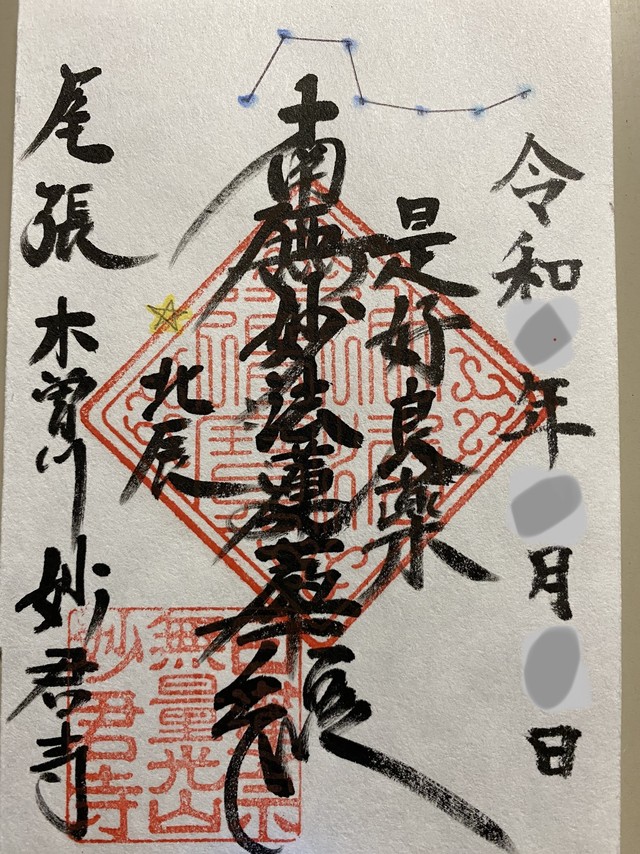 令和年月日
是好良薬
南無妙法蓮華経
北辰
尾張 木曽川 妙君寺
日蓮宗
無量光山
妙君寺